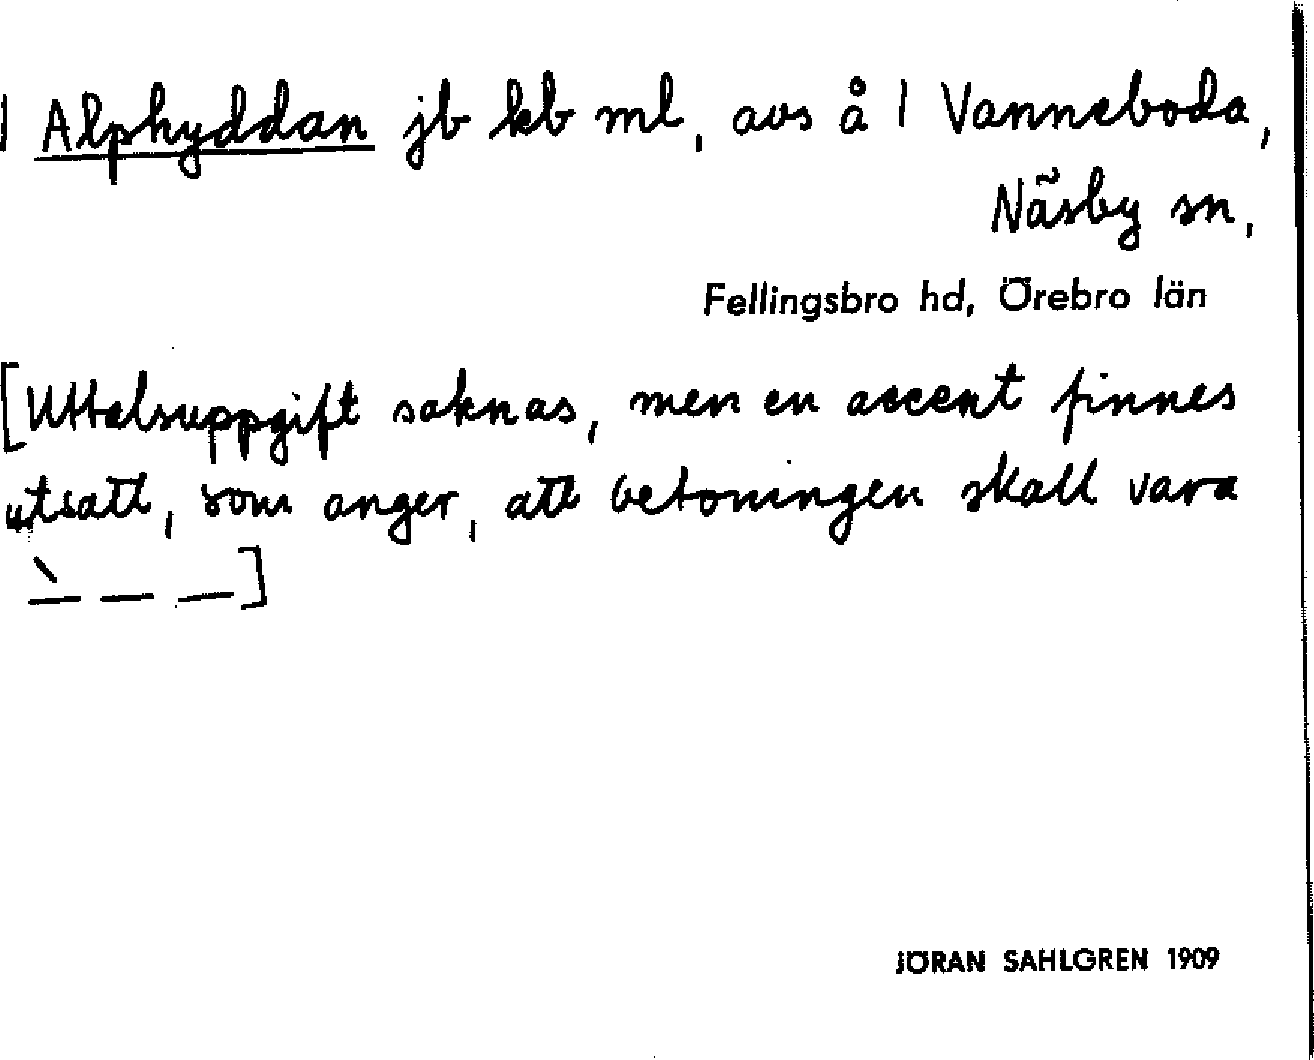 1 Alphyddan jb kb ml, avs å 1 Vanneboda,
Näsby sn,
Fellingsbro hd, Örebro län
[Uttalsuppgift saknas, men en accent finnes
utsatt, som anger, att betoningen skall vara
_̀ _ _]
JÖRAN SAHLGREN 1909